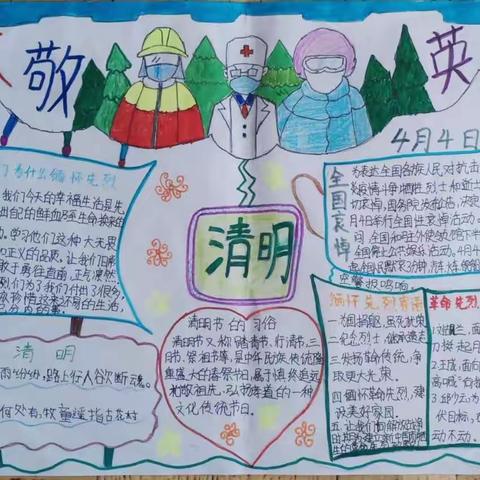 敬
英
4月4日
们为什么缅怀先烈
我们今天的幸福生活是先
出自己的鲜血及生命换来的
。学习他们这种大无畏
正义的品质,让我们
敢于勇往直前,正气凛然。
烈们为了我们付出了很多,
珍惜这来之不易的生活,
清 明
雨纷纷,路上行人欲断魂。
何处有,牧童遥指杏花村
清明
清明节的习俗
清明节又称踏青节、行清节、三
月节、祭祖节等,是中华民族传统隆
重盛大的春祭节日,属于慎终追远、
礼敬祖先、弘扬孝道的一种
文化传统节日。
全国哀悼
为表达全国各族人民对抗击
疫情斗争牺牲烈士和逝世
切哀悼,国务院发布公告,决定
月4日举行全国性哀悼活动。
间,全国和驻外使领馆下半
全国停止公共娱乐活动。4月4
起,全国人民默哀3分钟,汽车、火车、舰船
空警报鸣响。
缅怀先烈寄语
一.为国捐躯,虽死犹荣
二.纪念烈士,继承遗志
三.发扬革命传统,争
取更大光荣。
四.缅怀革命先烈,建
设美好家园。
革命先烈
2.王成,面向
高喊“向我
3.邱少云为
伏目标,在
动不动。